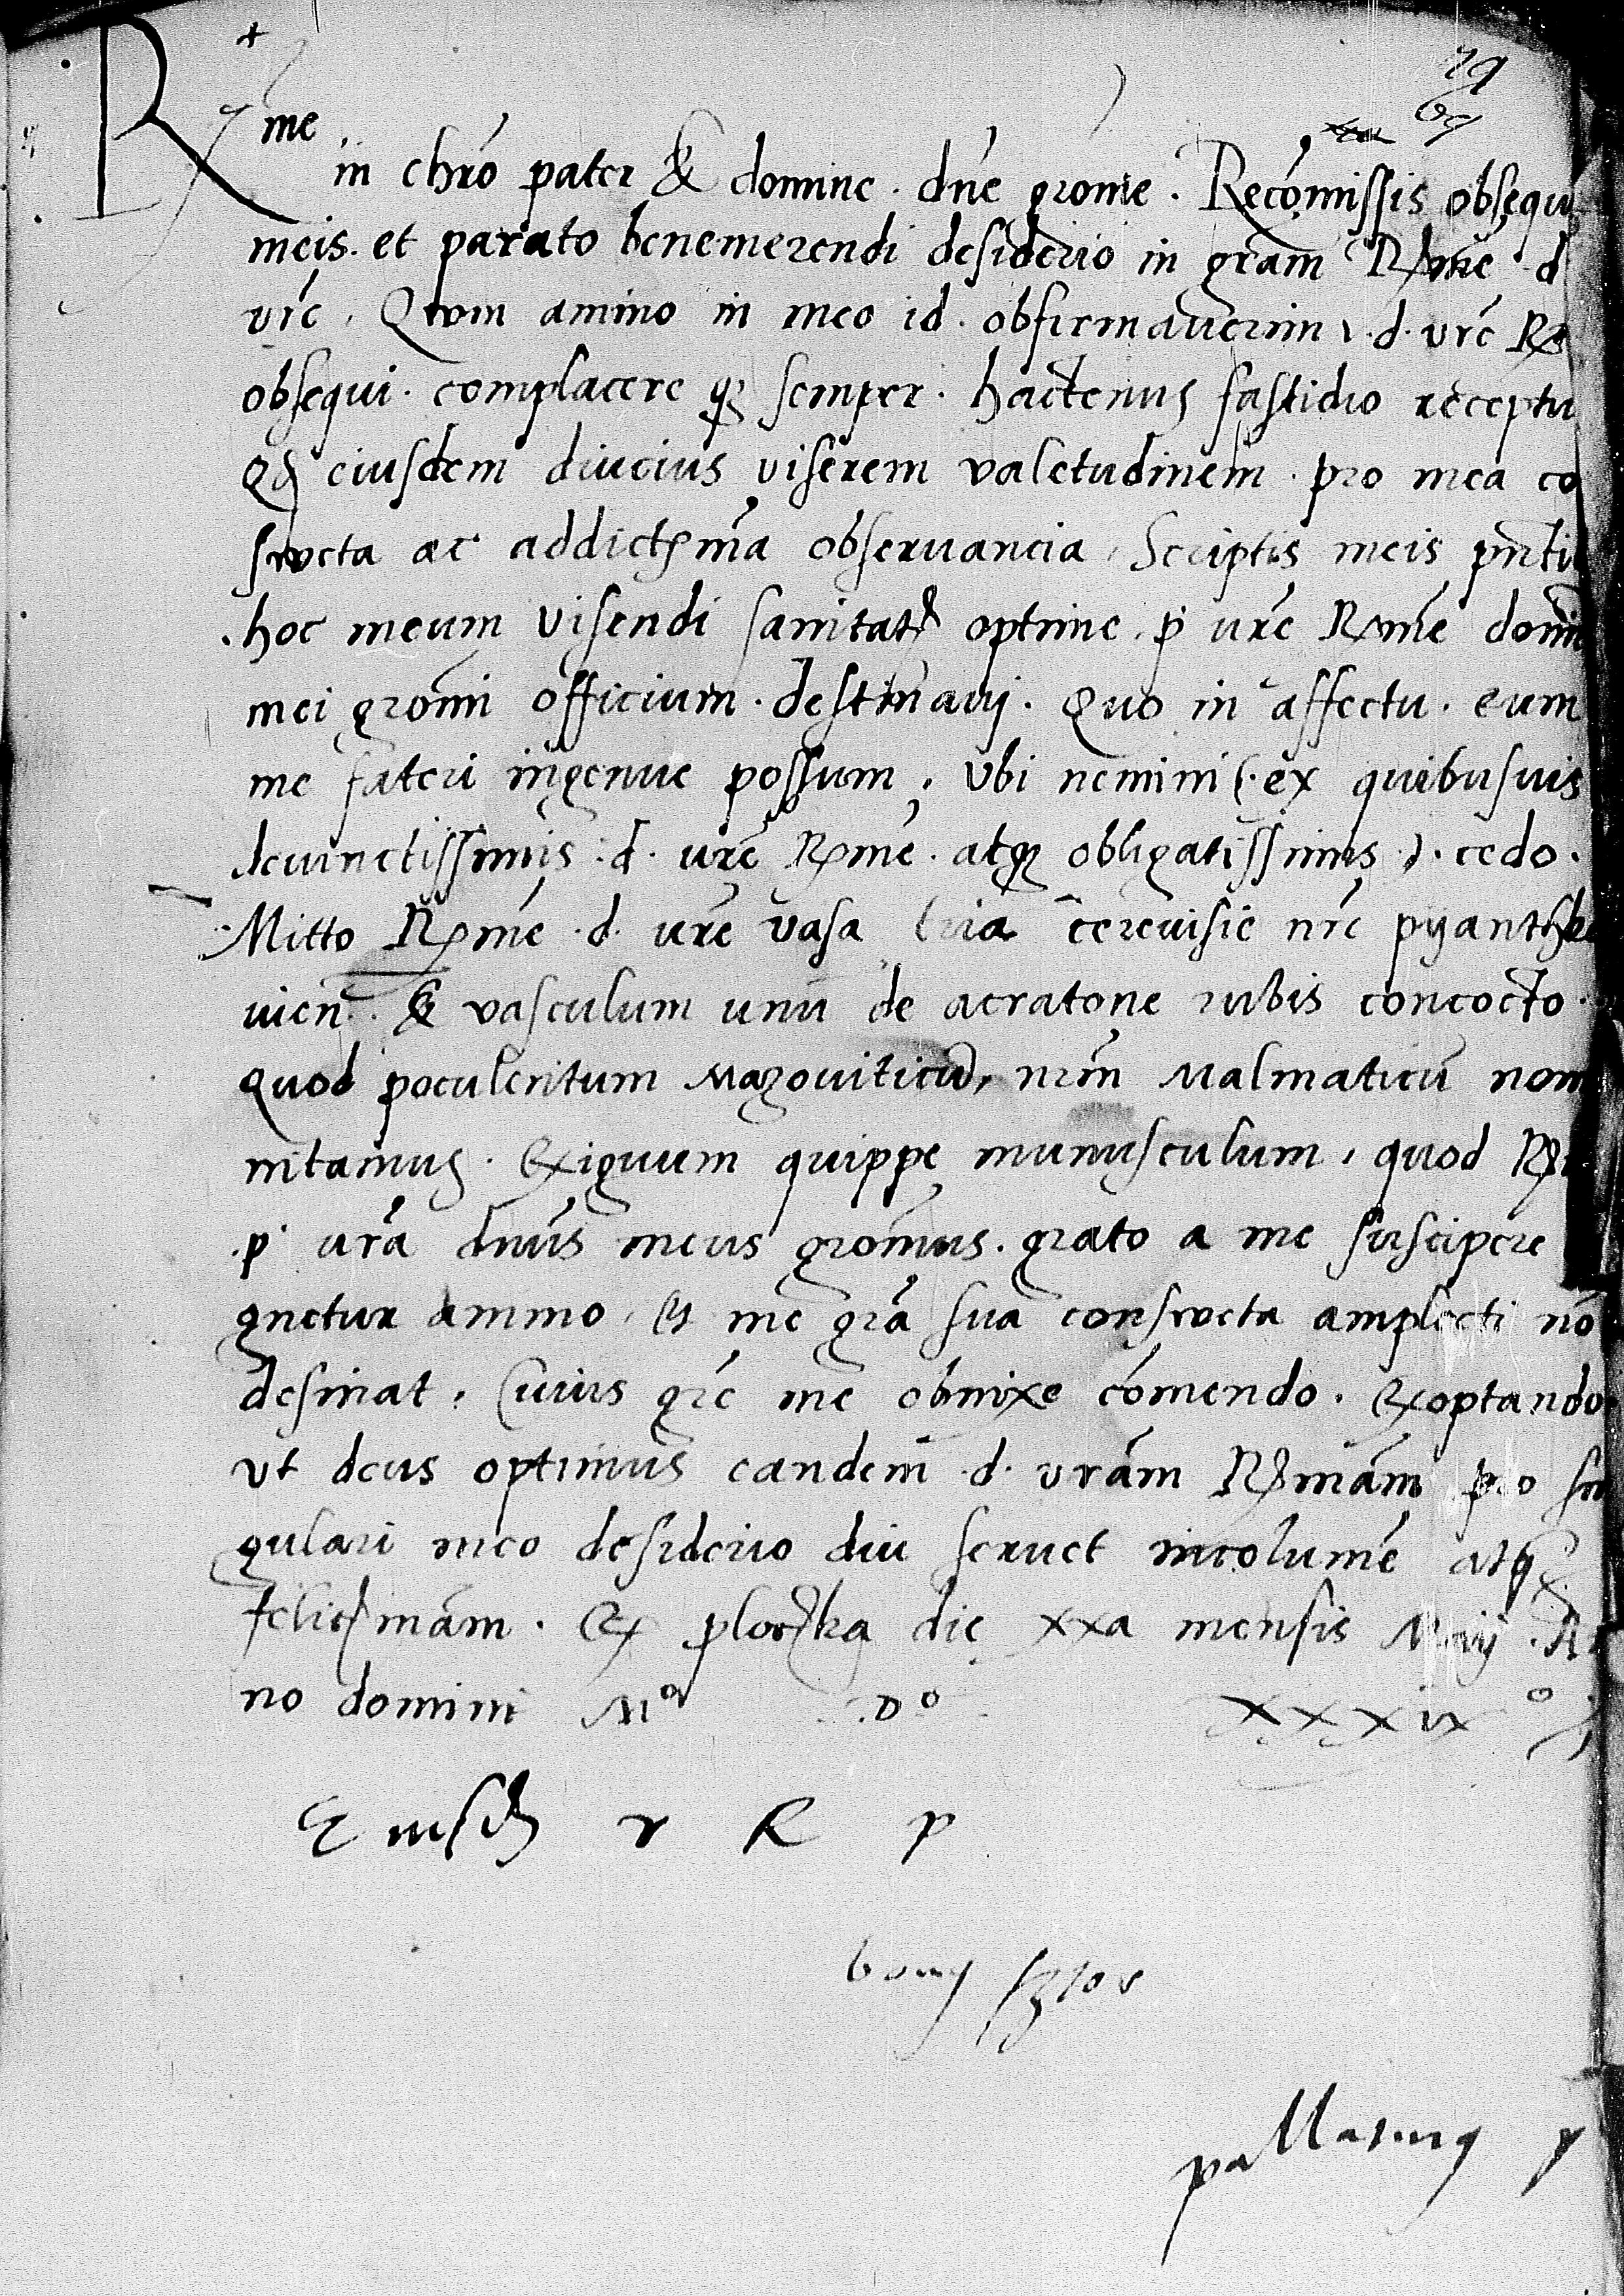 29
69
R me
in chro pater & domine . dne grome . Recomissis obsequ
meis . et parato benemerendi desiderio in gram Rme d
vre . Qvom animo in meo id . obfirmaverim . d . vre R
obsequi . complacere q3 semper . hactenus fastidio receptu
Qd eiusdem diucius viserem valetudinem . pro mea co
sweta ac addictma observancia . Scriptis meis pnti
hoc meum visendi sanitatē optime . p vre Rme domi
mei gromi officium . destinavij . Quo in affectu . eum
me fateri ingenue possum . Vbi nemini (. ex quibusuis
deuinctissimis . d . vre Rme . atq3 obligatissimis .) . cedo .
Mitto Rme . d . vre vasa tria cerevisie nre pyanthk
vien . & vasculum unu de acratone rubis concocto .
quod poculentum Mazoviticu, nrm Malmaticu nom
nitamus . Exiguum quippe munusculum . quod R
p vra dnus meus gromus . grato a me suscipere
gnetur animo . & me gra sua consweta amplecti no
desinat . Cuius gre me obnixe comendo . Exoptando
vt deus optimus eandem . d . vram Rmam pro sin
gulari meo desiderio diu servet incolume atq3
felicmam . Ex ploczka die xxa mensis Maij . An
no domini Mo . Do xxxixo
Eiusd v R p